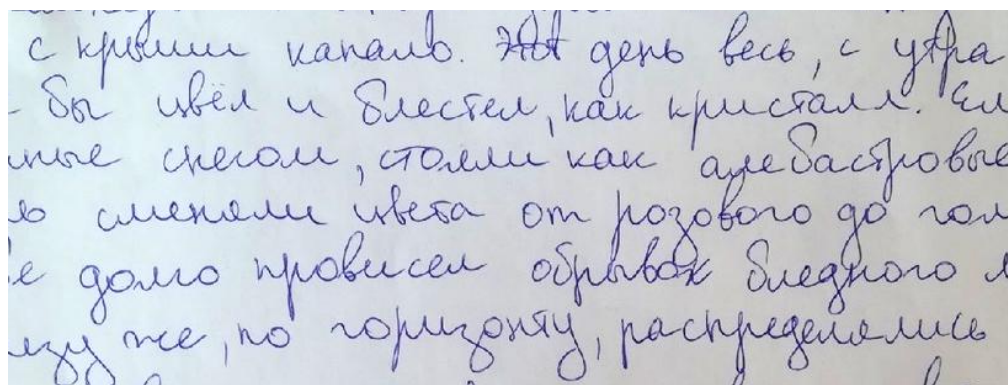 с крыши капало. Этот день весь, с утра
бы цвёл и блестел, как кристалл. Ел
нные снегом, стояли как алебастровые
ю сменяли цвета от розового до гол
бе долго провисел обрывок бледного л
изу же, по горизонту, распределялись